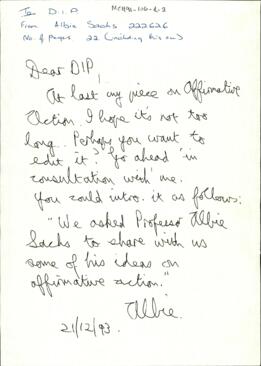 To D.I.P.
From Albie Sachs 222626
No. of pages 22 (including this one)
Dear DIP,
At last my piece on Affirmative
Action. I hope it's not too
long. Perhaps you want to
edit it? Go ahead in
consultation with me.
You could intro. it as follows:
"We asked Professor Albie
Sachs to share with us
some of his ideas on
affirmative action."
Albie.
21/12/93.